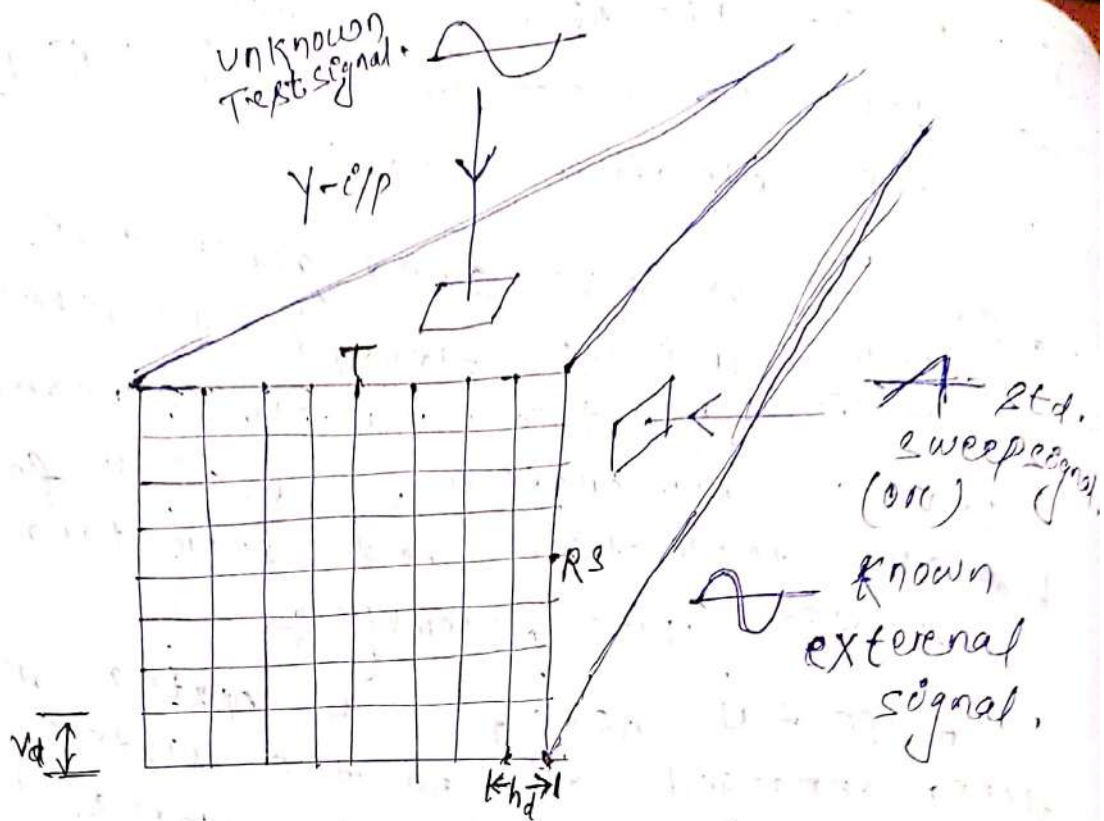 unknown
Test signal.
Y-i/p
T
Std.
sweep signal
(or)
RS
Known
external
signal.
Vd
hd